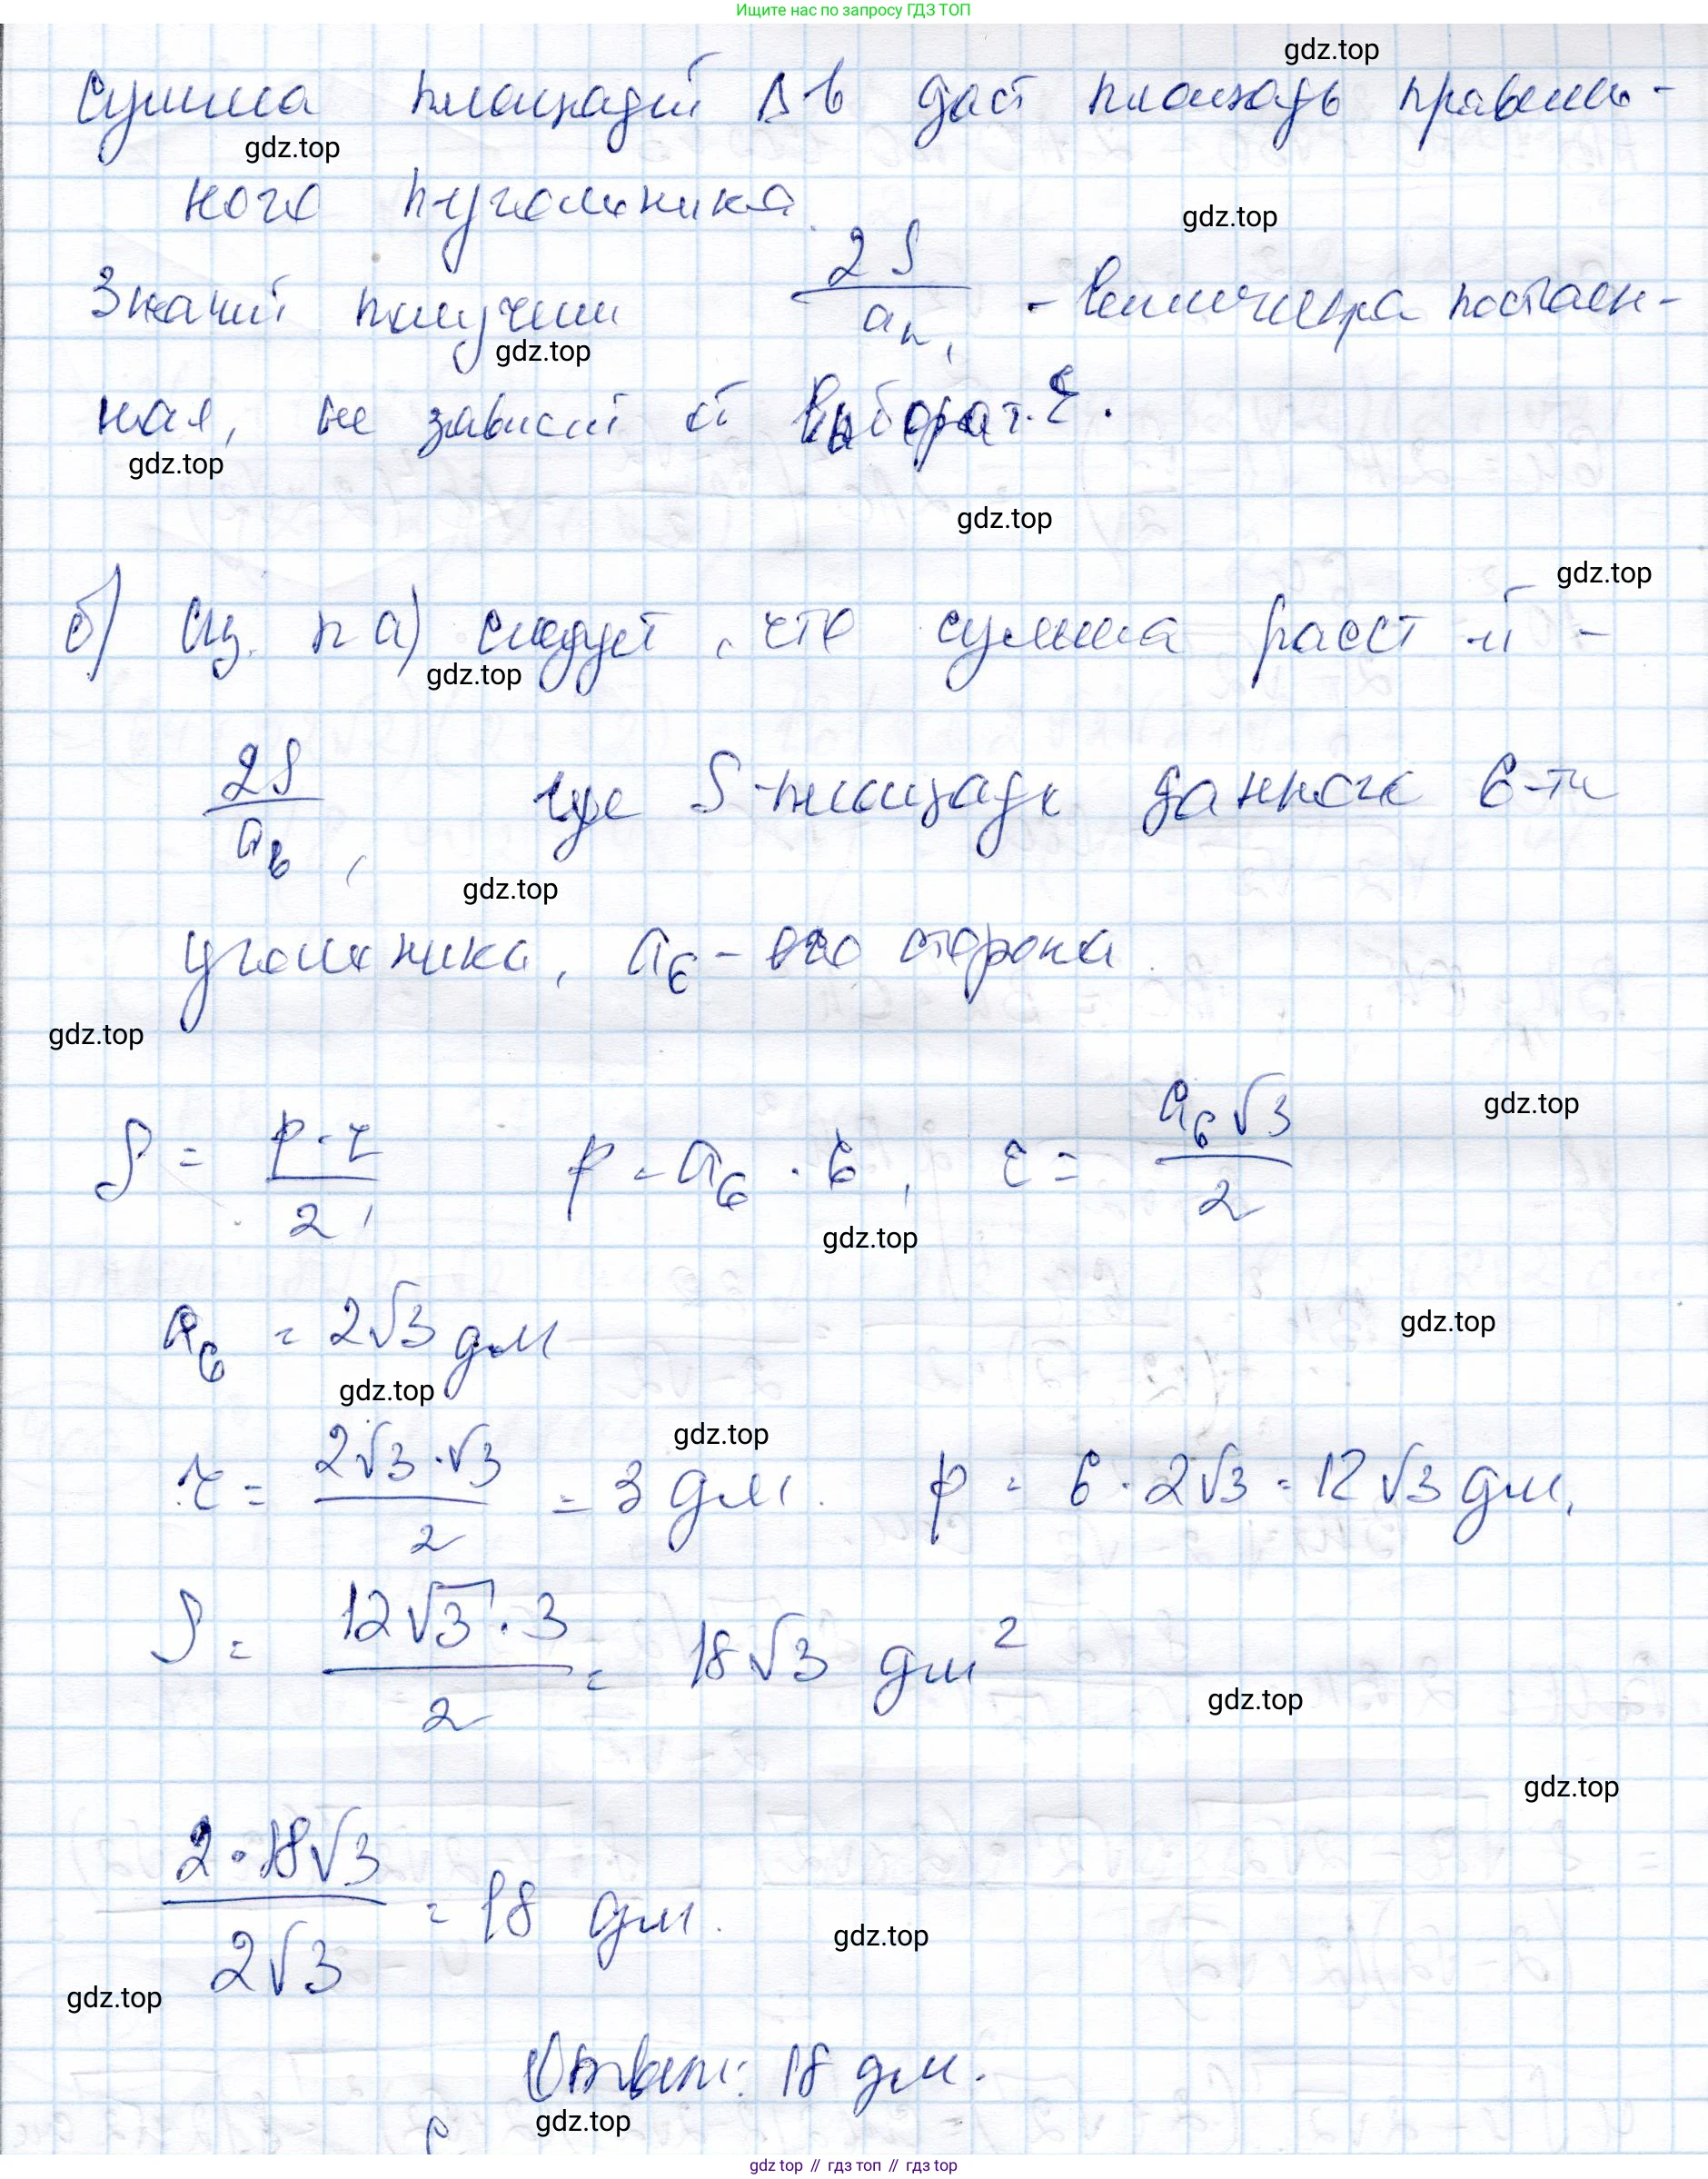 Ищите нас по запросу ГДЗ ТОП
gdz.top
Сумма площадей Δ-в даст площадь правиль-
gdz.top
ного n-угольника.
gdz.top
Значит получим 2S/aₙ, - величина постоян-
gdz.top
ная, не зависит от выбора т.
gdz.top
gdz.top
gdz.top
б) Из п а) следует, что сумма расст-й -
gdz.top
2S/a₆, где S-площадь данного 6-ти
gdz.top
угольника, a₆ - его сторона.
gdz.top
gdz.top
S = p·r/2, p = a₆ · 6, r = a₆√3/2
gdz.top
a₆ = 2√3 дм
gdz.top
gdz.top
gdz.top
r = 2√3·√3/2 = 3 дм. p = 6·2√3 = 12√3 дм,
S = 12√3·3/2 = 18√3 дм²
gdz.top
gdz.top
2·18√3/2√3 = 18 дм.
gdz.top
gdz.top
Ответ: 18 дм.
gdz.top
gdz top // гдз топ // гдз top